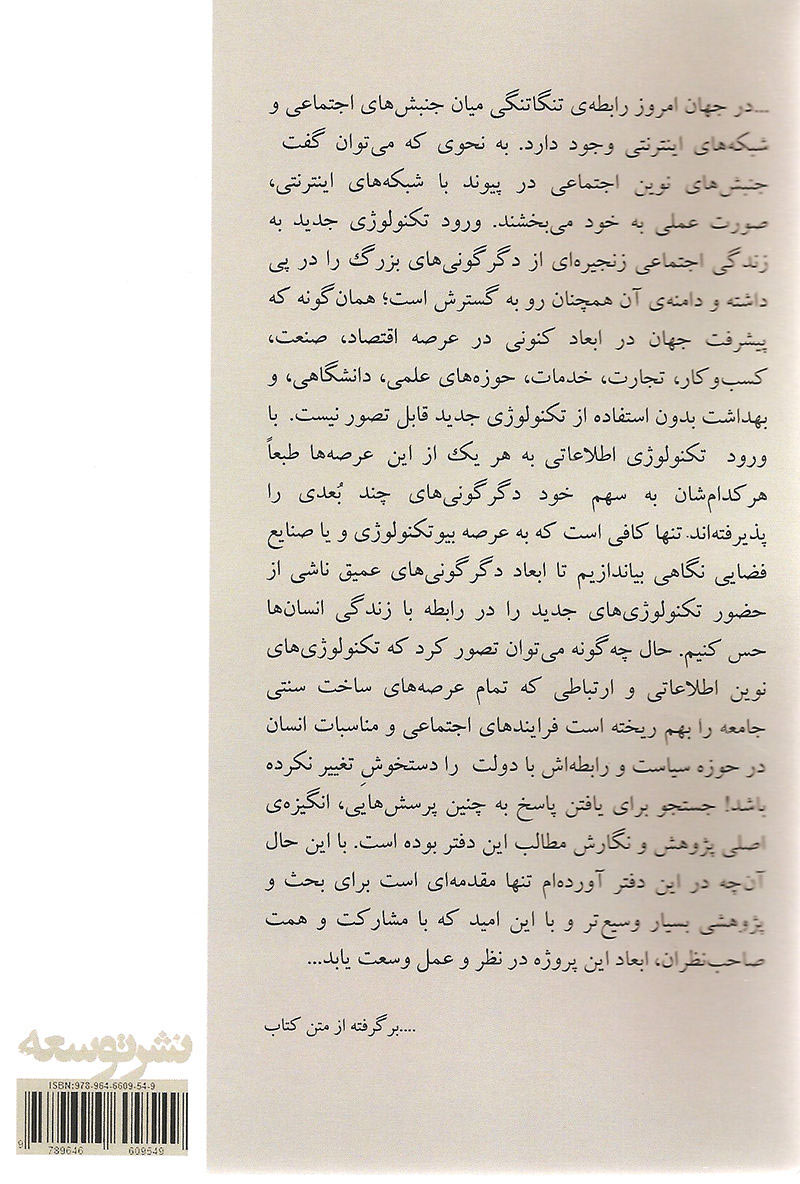 ...در جهان امروز رابطه‌ی تنگاتنگی میان جنبش‌های اجتماعی و
شبکه‌های اینترنتی وجود دارد. به نحوی که می‌توان گفت
جنبش‌های نوین اجتماعی در پیوند با شبکه‌های اینترنتی،
صورت عملی به خود می‌بخشند. ورود تکنولوژی جدید به
زندگی اجتماعی زنجیره‌ای از دگرگونی‌های بزرگ را در پی
داشته و دامنه‌ی آن همچنان رو به گسترش است؛ همان‌گونه که
پیشرفت جهان در ابعاد کنونی در عرصه اقتصاد، صنعت،
کسب‌وکار، تجارت، خدمات، حوزه‌های علمی، دانشگاهی، و
بهداشت بدون استفاده از تکنولوژی جدید قابل تصور نیست. با
ورود تکنولوژی اطلاعاتی به هر یک از این عرصه‌ها طبعاً
هرکدام‌شان به سهم خود دگرگونی‌های چند بُعدی را
پذیرفته‌اند. تنها کافی است که به عرصه بیوتکنولوژی و یا صنایع
فضایی نگاهی بیاندازیم تا ابعاد دگرگونی‌های عمیق ناشی از
حضور تکنولوژی‌های جدید را در رابطه با زندگی انسان‌ها
حس کنیم. حال چه‌گونه می‌توان تصور کرد که تکنولوژی‌های
نوین اطلاعاتی و ارتباطی که تمام عرصه‌های ساخت سنتی
جامعه را بهم ریخته است فرایندهای اجتماعی و مناسبات انسان
در حوزه سیاست و رابطه‌اش با دولت را دستخوشِ تغییر نکرده
باشد! جستجو برای یافتن پاسخ به چنین پرسش‌هایی، انگیزه‌ی
اصلی پژوهش و نگارش مطالب این دفتر بوده است. با این حال
آن‌چه در این دفتر آورده‌ام تنها مقدمه‌ای است برای بحث و
پژوهشی بسیار وسیع‌تر و با این امید که با مشارکت و همت
صاحب‌نظران، ابعاد این پروژه در نظر و عمل وسعت یابد...
....برگرفته از متن کتاب
نشر توسعه
ISBN:978-964-6609-54-9
9 789646 609549